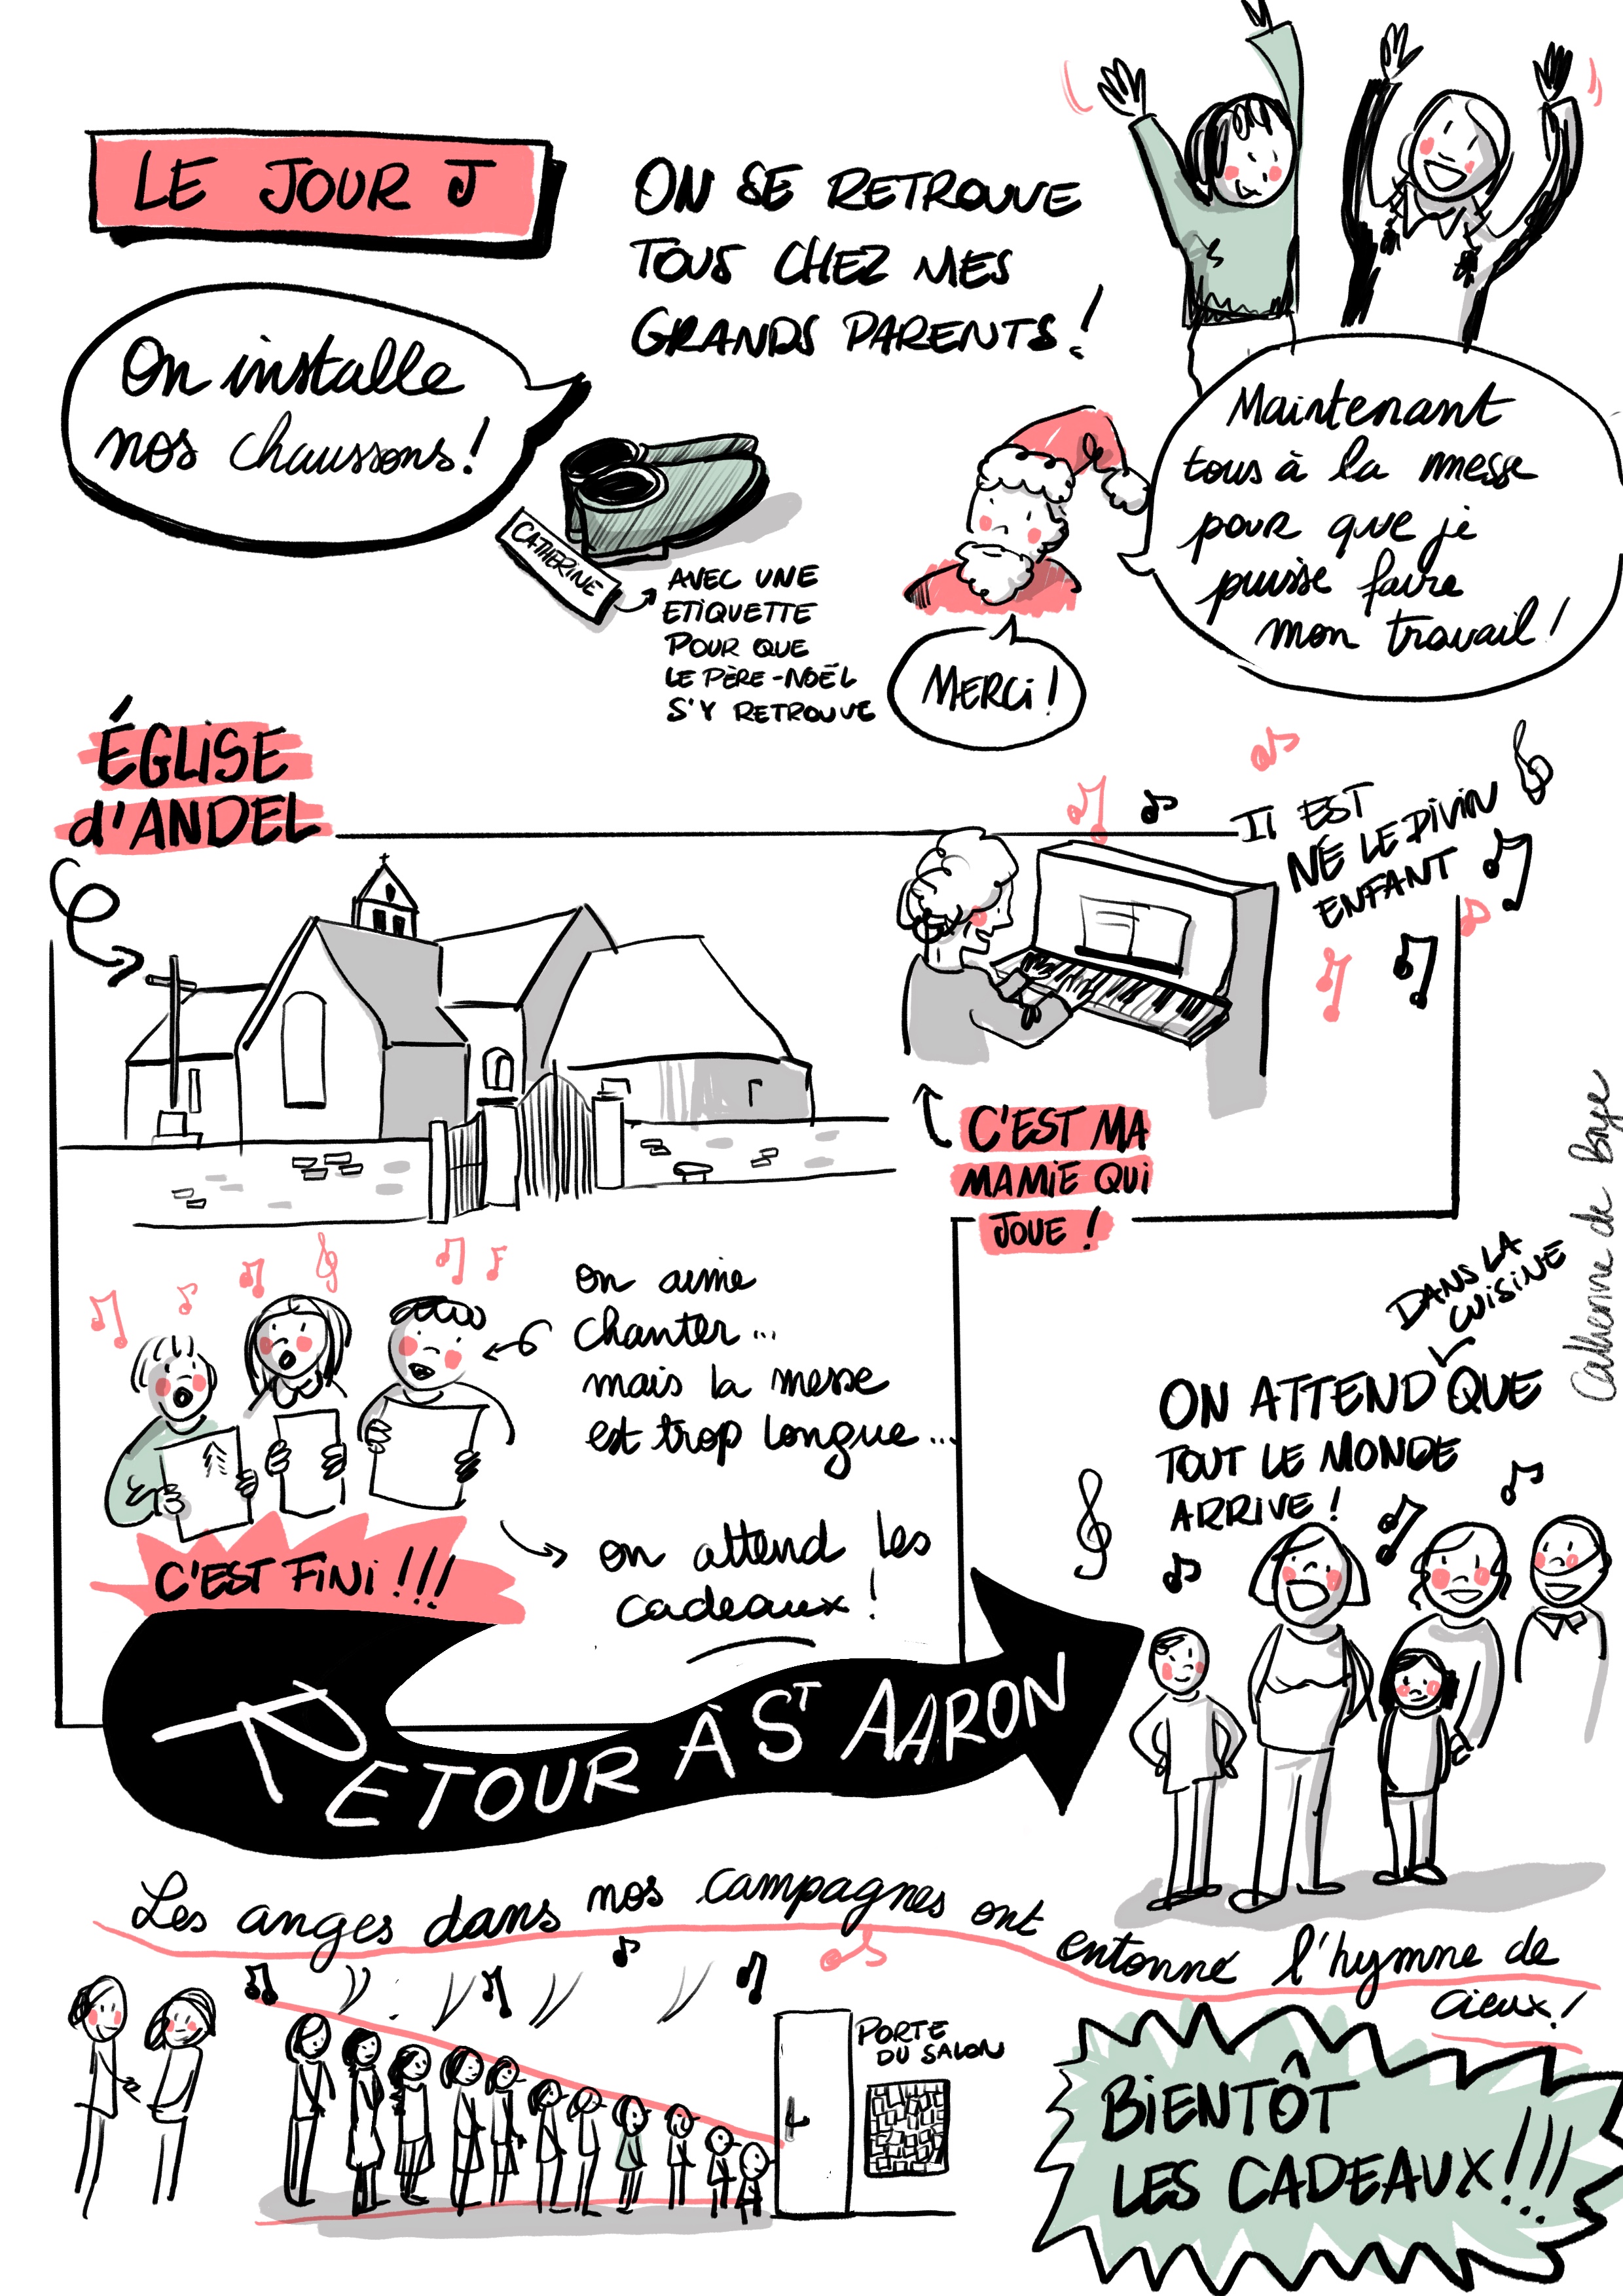 LE JOUR J
ON SE RETROUVE
TOUS CHEZ MES
GRANDS PARENTS !
On installe
nos chaussons !
CATHERINE
AVEC UNE
ETIQUETTE
POUR QUE
LE PÈRE-NOËL
S'Y RETROUVE
Maintenant
tous à la messe
pour que je
puisse faire
mon travail !
MERCI !
ÉGLISE
d'ANDEL
Il EST
NÉ LE DIVIN
ENFANT
C'EST MA
MAMIE QUI
JOUE !
on aime
chanter...
mais la messe
est trop longue...
on attend les
cadeaux !
C'EST FINI !!!
RETOUR À ST AARON
DANS LA
CUISINE
ON ATTEND QUE
TOUT LE MONDE
ARRIVE !
Catherine de Baye
Les anges dans nos campagnes ont entonné l'hymne de
cieux !
PORTE
DU SALON
BIENTÔT
LES CADEAUX !!!